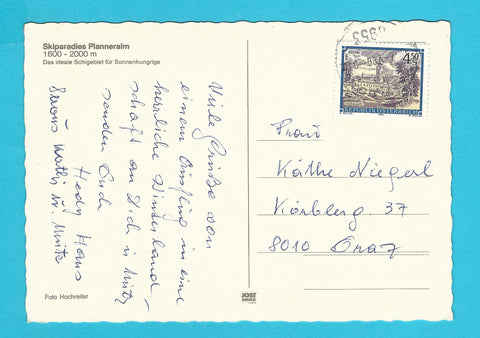 Skiparadies Planneralm
1600 - 2000 m
Das ideale Schigebiet für Sonnenhungrige
Viele Grüße von
einem Ausflug in eine
herrliche Winterland-
schaft an Dich u. Mitz
senden Euch
Hedy Hans
Kathi u. Moritz
Foto Hochreiter
JOST
4.50
REPUBLIK ÖSTERREICH
Frau
Käthe Niegerl
Körblerg. 37
8010 Graz